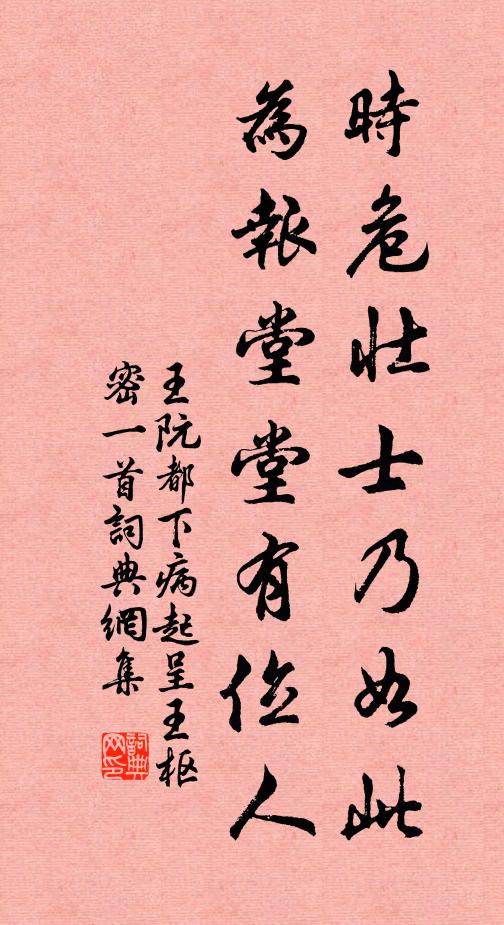 時危壯士乃如此
為報堂堂有位人
王阮都下病起呈王枢
密一首詞典網集
詞典
网印